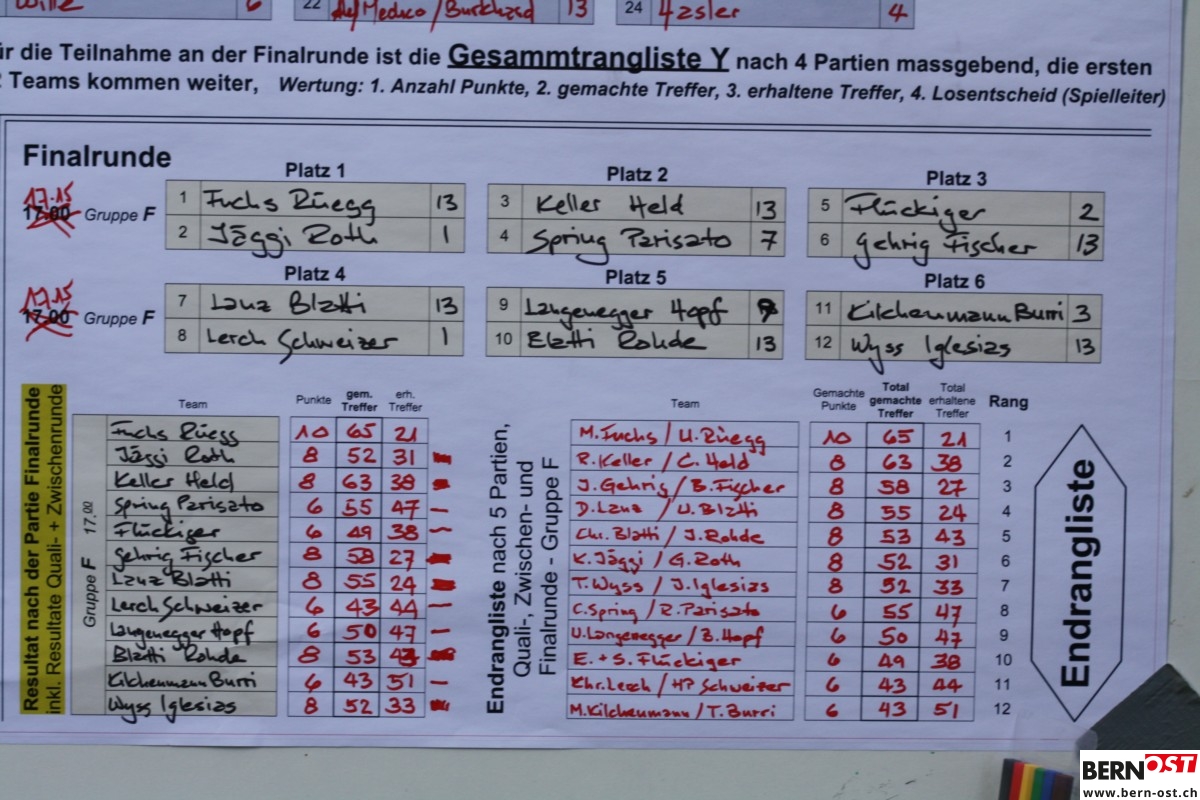 6 22 Burkhard 13 24 4
ür die Teilnahme an der Finalrunde ist die Gesammtrangliste Y nach 4 Partien massgebend, die ersten
2 Teams kommen weiter, Wertung: 1. Anzahl Punkte, 2. gemachte Treffer, 3. erhaltene Treffer, 4. Losentscheid (Spielleiter)
Finalrunde
Platz 1 Platz 2 Platz 3
17.15
17.00 Gruppe F
1 Fuchs Rüegg 13 3 Keller Held 13 5 Flückiger 2
2 Jäggi Roth 1 4 Spring Parisato 7 6 Gehrig Fischer 13
Platz 4 Platz 5 Platz 6
17.15
17.00 Gruppe F
7 Lanz Blatti 13 9 Langenegger Hopf 9 11 Kilchenmann Burri 3
8 Lerch Schweizer 1 10 Blatti Rohde 13 12 Wyss Iglesias 13
Resultat nach der Partie Finalrunde
inkl. Resultate Quali- + Zwischenrunde
Gruppe F 17.00
Team Punkte gem. Treffer erh. Treffer
Fuchs Rüegg 10 65 21
Jäggi Roth 8 52 31
Keller Held 8 63 38
Spring Parisato 6 55 47
Flückiger 6 49 38
Gehrig Fischer 8 58 27
Lanz Blatti 8 55 24
Lerch Schweizer 6 43 44
Langenegger Hopf 6 50 47
Blatti Rohde 8 53 43
Kilchenmann Burri 6 43 51
Wyss Iglesias 8 52 33
Endrangliste nach 5 Partien,
Quali-, Zwischen- und
Finalrunde - Gruppe F
Team Gemachte Punkte Total gemachte Treffer Total erhaltene Treffer Rang
M. Fuchs / U. Rüegg 10 65 21 1
R. Keller / C. Held 8 63 38 2
J. Gehrig / B. Fischer 8 58 27 3
D. Lanz / U. Blatti 8 55 24 4
Chr. Blatti / J. Rohde 8 53 43 5
K. Jäggi / G. Roth 8 52 31 6
T. Wyss / J. Iglesias 8 52 33 7
C. Spring / R. Parisato 6 55 47 8
U. Langenegger / B. Hopf 6 50 47 9
E. + S. Flückiger 6 49 38 10
Chr. Lerch / HP Schweizer 6 43 44 11
M. Kilchenmann / T. Burri 6 43 51 12
Endrangliste
BERNOST
www.bern-ost.ch